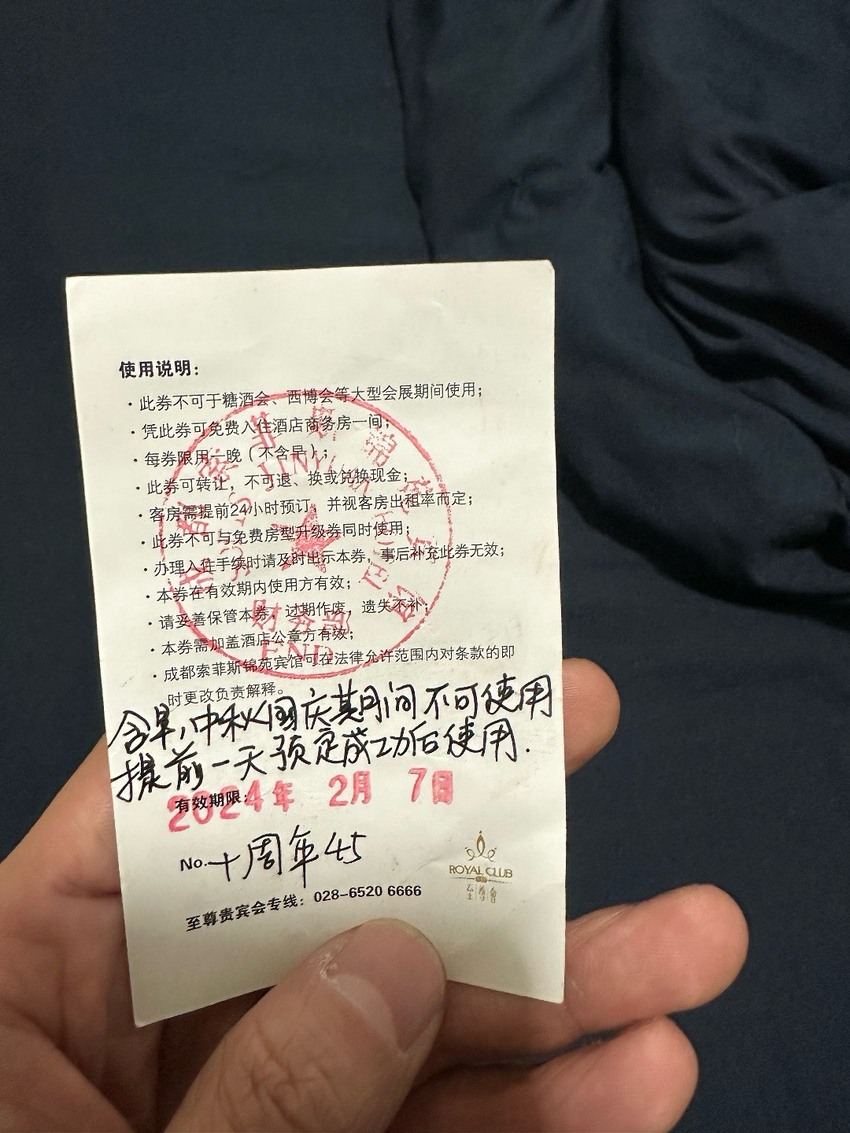 使用说明：
· 此券不可于糖酒会、西博会等大型会展期间使用；
· 凭此券可免费入住酒店商务房一间；
· 每券限用一晚（不含早）；
· 此券可转让，不可退、换或兑换现金；
· 客房需提前24小时预订，并视客房出租率而定；
· 此券不可与免费房型升级券同时使用；
· 办理入住手续时请及时出示本券，事后补充此券无效；
· 本券在有效期内使用方有效；
· 请妥善保管本券，过期作废，遗失不补；
· 本券需加盖酒店公章方有效；
· 成都索菲斯锦苑宾馆可在法律允许范围内对条款的即
时更改负责解释。
含早，中秋国庆期间不可使用
提前一天预定成功后使用.
有效期限：2024年 2月 7日
No.十周年45
至尊贵宾会专线：028-6520 6666
ROYAL CLUB
至尊會